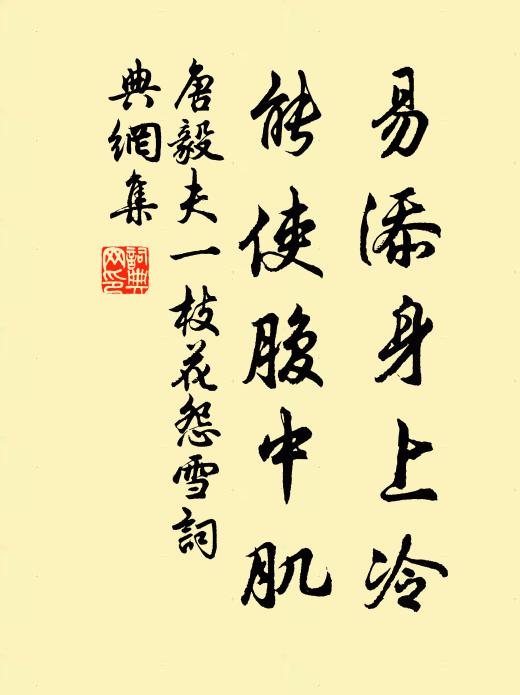 易添身上冷
能使腹中肌
唐毅夫一枝花怨雪詞
典網集
詞典網印